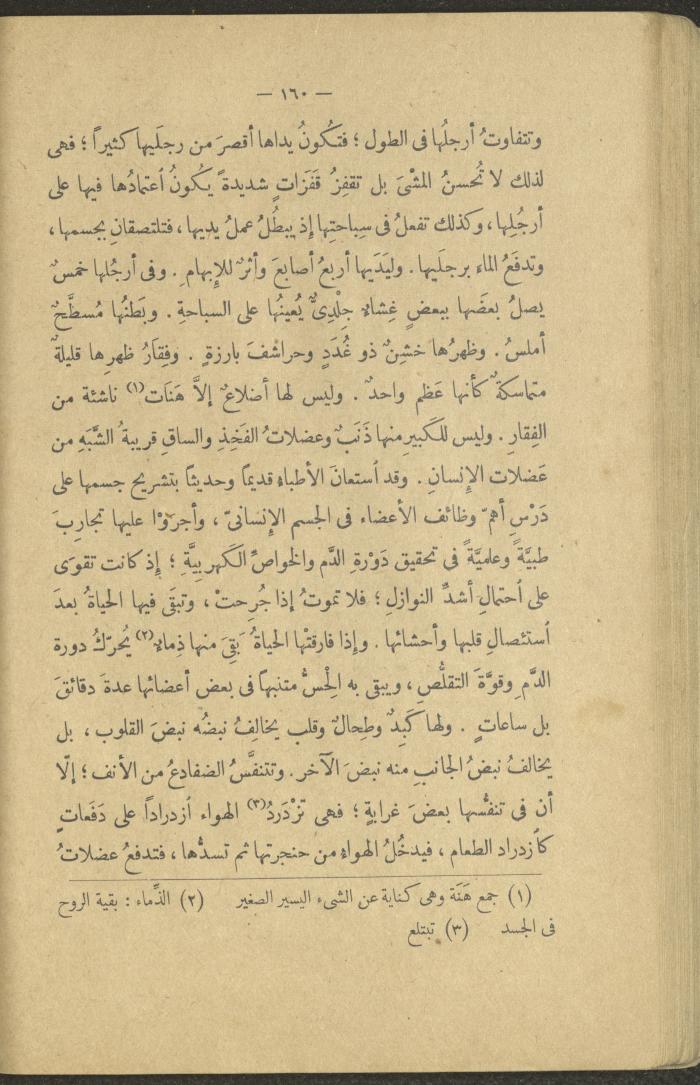 — ١٦٠ —
وتتفاوتُ أرجلُها فى الطول ؛ فتكُونُ يداها أقصرَ من رجلَيها كثيراً ؛ فهى
لذلك لا تُحسنُ المشْىَ بل تقفِزُ قَفَزَاتٍ شديدةً يكُونُ اُعتمادُها فيها على
أرجُلِها ، وكذلك تفعلُ فى سِباحتِها إذ يبطُلُ عملُ يديها ، فتلتصقانِ بجسمها ،
وتدفَعُ الماء برجلَيها . وليَدَيها أربعُ أصابعَ وأثرٌ للإِبهامِ . وفى أرجُلها خمسٌ
يصلُ بعضَها ببعضٍ غِشاءٌ جِلْدِىٌّ يُعينُها على السباحةِ . وبَطنُها مُسطَّحٌ
أملسُ . وظهرُها خشِنٌ ذو غُدَدٍ وحراشفَ بارزةٍ . وفِقارُ ظهرِها قليلةٌ
متماسكةٌ كأنها عَظم واحدٌ . وليس لها أضلاعٌ إلاَّ هَنَات(١) ناشئة من
الفِقارِ . وليس للكَبيرِ منها ذَنَبٌ وعضلاتُ الفَخِذِ والساقِ قريبةُ الشَّبَهِ من
عَضلات الإنسانِ . وقد اُستعانَ الأطباء قديماً وحديثاً بتشريح جسمها على
دَرْسِ أهمّ وظائف الأعضاء فى الجسم الإِنسانىّ ، وأجرَوْا عليها تجارِبَ
طبيَّةً وعلميَّةً فى تحقيق دَوْرةِ الدَّم والخواصِّ الكَهربيَّةِ ؛ إذ كانت تقوَى
على اُحتمالِ أشدِّ النوازلِ ؛ فلا تموتُ إذا جُرِحتْ ، وتبقَى فيها الحياةُ بعدَ
اُستئصالِ قلبها وأحشائها . وإذا فارقتْها الحياةُ بَقِىَ منها ذِماء(٢) يُحرّكُ دورة
الدَّمِ وقوَّةَ التقلُّصِ ، ويبقى به الحِسُّ متنبهاً فى بعض أعضائها عدةَ دقائقَ
بل ساعاتٍ . ولها كَبِدٌ وطِحالٌ وقلب يخالِفُ نبضُه نبضَ القلوب ، بل
يخالفُ نبضُ الجانبِ منه نبضَ الآخر . وتتنفَّسُ الضفادعُ من الأنف ؛ إلّا
أن فى تنفُّسها بعضَ غرابةٍ ؛ فهى تزْدَردُ(٣) الهواء اُزدراداً على دَفَعاتٍ
كاُزدراد الطعام ، فيدخُلُ الهواء من حنجرتها ثم تسدُّها ، فتدفعُ عضلاتُ
(١) جمع هَنَة وهى كناية عن الشىء اليسير الصغير (٢) الذَّماء : بقية الروح
فى الجسد (٣) تبتلع